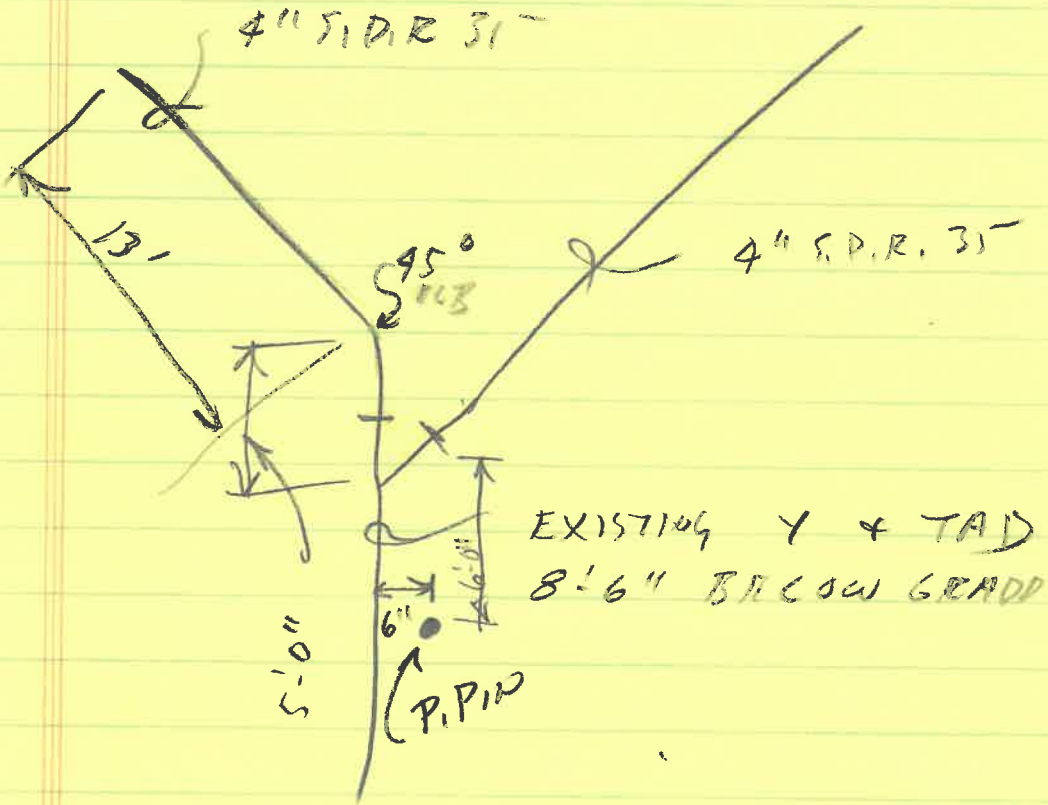 4" S.D.R 35
13'
45°
4" S.D.R. 35
EXISTING Y & TAP
8'-6" BELOW GRADE
6'-0"
6"
5'-0"
P.PIN